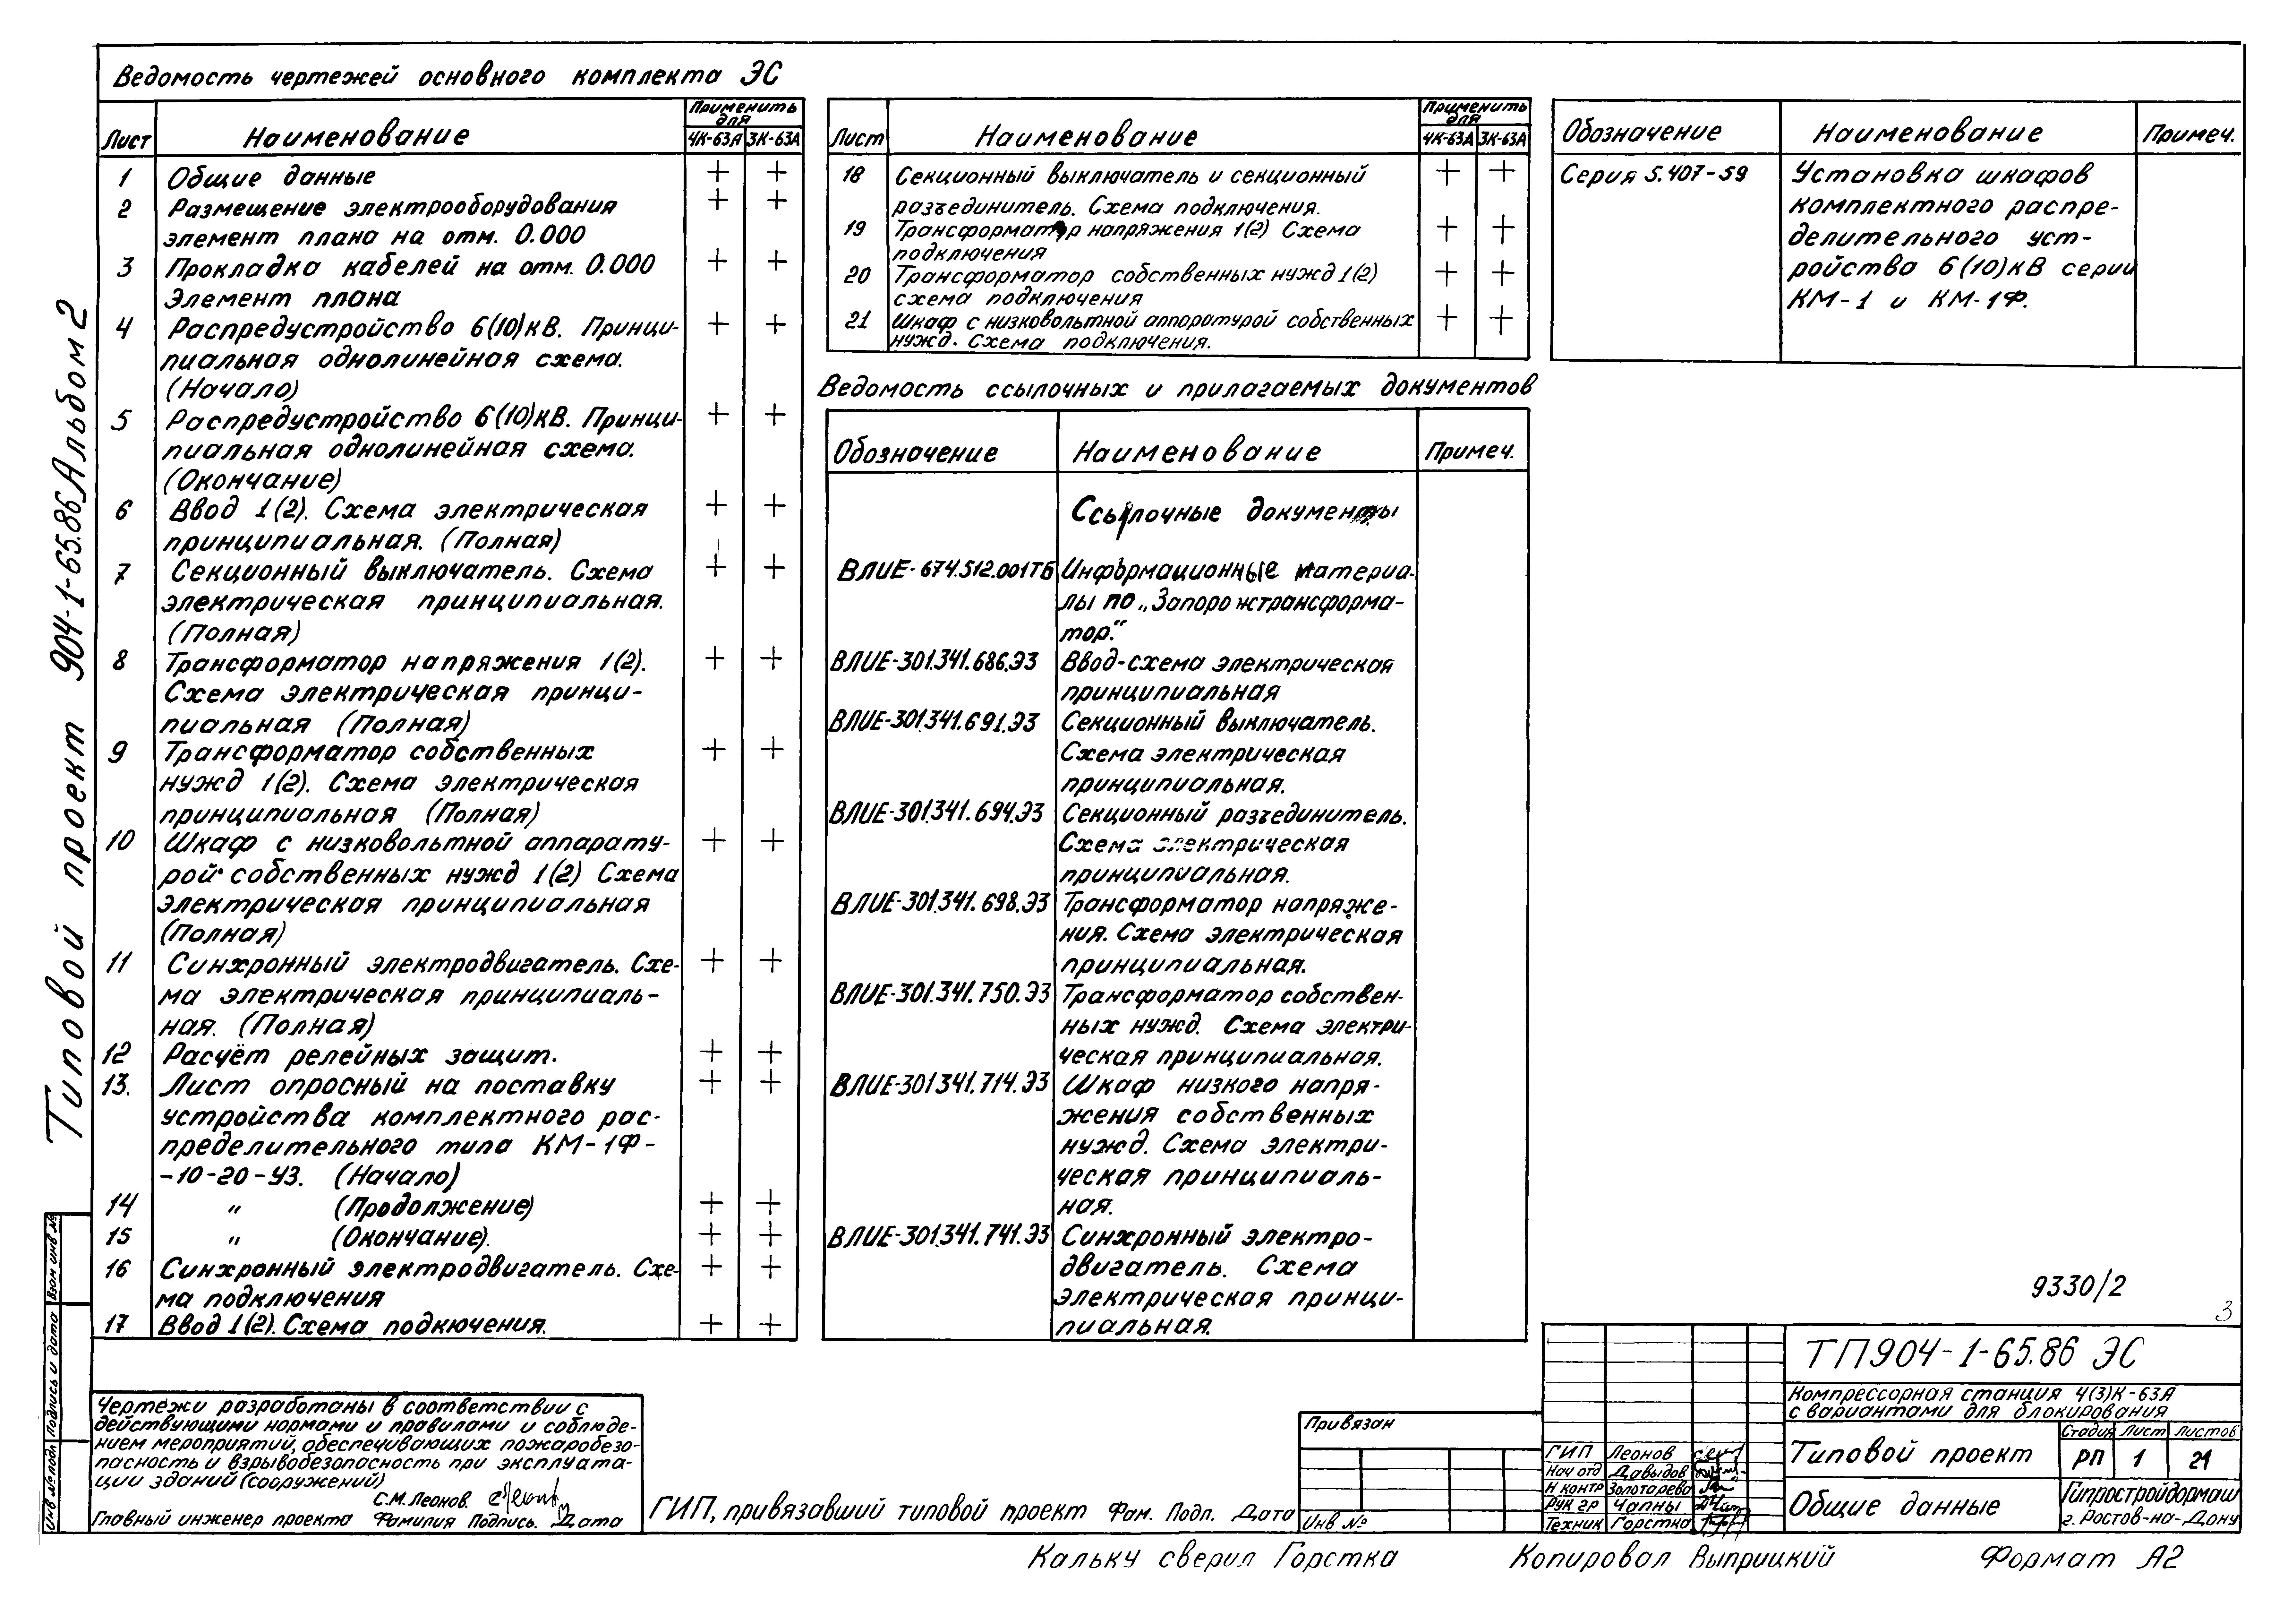 Типовой проект 904-1-65.86 Альбом 2
Ведомость чертежей основного комплекта ЭС
Лист Наименование Применить для
4К-63А 3К-63А
1 Общие данные + +
2 Размещение электрооборудования + +
элемент плана на отм. 0.000
3 Прокладка кабелей на отм. 0.000 + +
Элемент плана
4 Распредустройство 6(10)кВ. Принци- + +
пиальная однолинейная схема.
(Начало)
5 Распредустройство 6(10)кВ. Принци- + +
пиальная однолинейная схема.
(Окончание)
6 Ввод 1(2). Схема электрическая + +
принципиальная. (Полная)
7 Секционный выключатель. Схема + +
электрическая принципиальная.
(Полная)
8 Трансформатор напряжения 1(2). + +
Схема электрическая принци-
пиальная (Полная)
9 Трансформатор собственных + +
нужд 1(2). Схема электрическая
принципиальная (Полная)
10 Шкаф с низковольтной аппарату- + +
рой собственных нужд 1(2) Схема
электрическая принципиальная
(Полная)
11 Синхронный электродвигатель. Схе- + +
ма электрическая принципиаль-
ная. (Полная)
12 Расчёт релейных защит. + +
13. Лист опросный на поставку + +
устройства комплектного рас-
пределительного типа КМ-1Ф-
-10-20-У3. (Начало)
14 " (Продолжение) + +
15 " (Окончание). + +
16 Синхронный электродвигатель. Схе- + +
ма подключения
17 Ввод 1(2). Схема подкючения. + +
Лист Наименование Применить для
4К-63А 3К-63А
18 Секционный выключатель и секционный + +
разъединитель. Схема подключения.
19 Трансформатор напряжения 1(2) Схема + +
подключения
20 Трансформатор собственных нужд 1(2) + +
схема подключения
21 Шкаф с низковольтной аппаратурой собственных + +
нужд. Схема подключения.
Ведомость ссылочных и прилагаемых документов
Обозначение Наименование Примеч.
Ссылочные документы
ВЛИЕ-674.512.001ТБ Информационные материа-
лы по „Запорожтрансформа-
тор."
ВЛИЕ-301.341.686.Э3 Ввод-схема электрическая
принципиальная
ВЛИЕ-301.341.691.Э3 Секционный выключатель.
Схема электрическая
принципиальная.
ВЛИЕ-301.341.694.Э3 Секционный разъединитель.
Схема электрическая
принципиальная.
ВЛИЕ-301.341.698.Э3 Трансформатор напряже-
ния. Схема электрическая
принципиальная.
ВЛИЕ-301.341.750.Э3 Трансформатор собствен-
ных нужд. Схема электри-
ческая принципиальная.
ВЛИЕ-301.341.714.Э3 Шкаф низкого напря-
жения собственных
нужд. Схема электри-
ческая принципиаль-
ная.
ВЛИЕ-301.341.741.Э3 Синхронный электро-
двигатель. Схема
электрическая принци-
пиальная.
Обозначение Наименование Примеч.
Серия 5.407-59 Установка шкафов
комплектного распре-
делительного уст-
ройства 6(10)кВ серии
КМ-1 и КМ-1Ф.
9330/2
3
Взам инв №
Подпись и дата
Инв № подл
Чертежи разработаны в соответствии с
действующими нормами и правилами и соблюде-
нием мероприятий, обеспечивающих пожаробезо-
пасность и взрывобезопасность при эксплуата-
ции зданий (сооружений)
С.М. Леонов.
Главный инженер проекта Фамилия Подпись. Дата
ГИП, привязавший типовой проект Фам. Подп. Дата
Привязан
Инв №
ТП904-1-65.86 ЭС
Компрессорная станция 4(3)К-63А
с вариантами для блокирования
ГИП Леонов
Нач отд Давыдов
Н контр Золотарева
Рук гр Чапны
Техник Горстка
Типовой проект
Стадия Лист Листов
РП 1 21
Общие данные
Гипростройдормаш
г. Ростов-на-Дону
Кальку сверил Горстка Копировал Выприцкий Формат А2